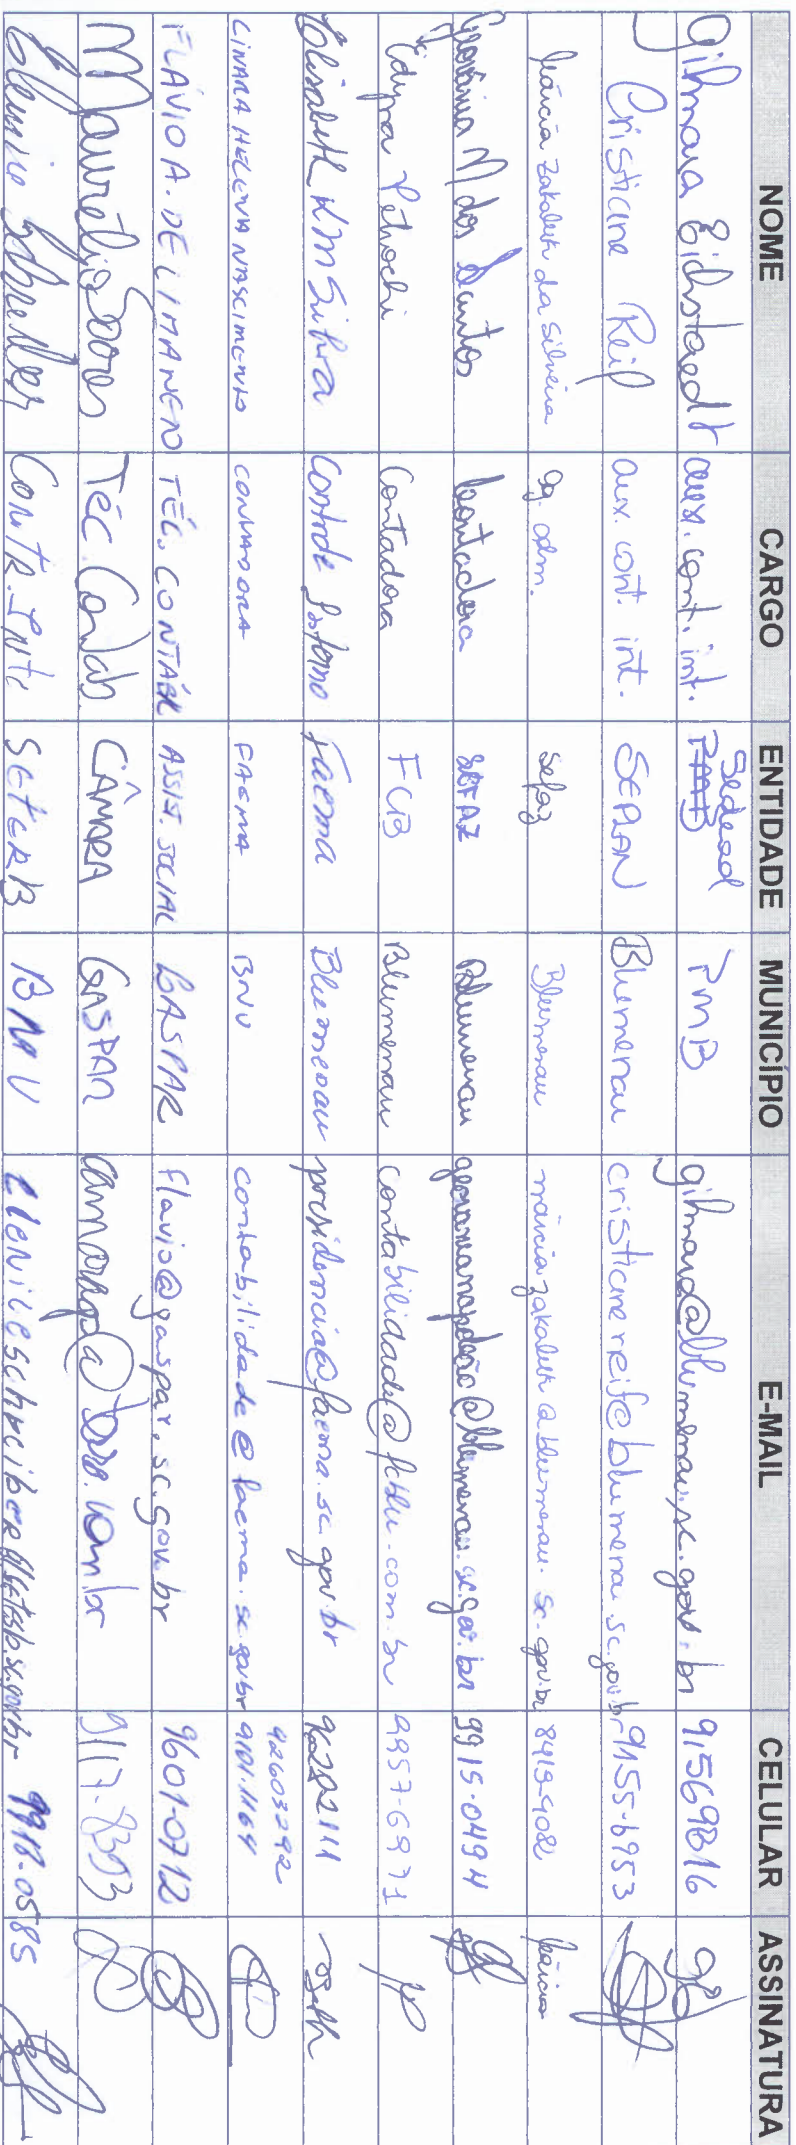 NOME CARGO ENTIDADE MUNICÍPIO E-MAIL CELULAR ASSINATURA
Gilmara Eichstaedt aux. cont. int. Sedead PMB gilmara@blumenau.sc.gov.br 91569816
Cristiane Reif aux. cont. int. SEPLAN Blumenau cristianereif@blumenau.sc.gov.br 9155-6953
Márcia Zakaluk da Silveira Ag. adm. Sefaz Blumenau marciazakaluk@blumenau.sc.gov.br Márcia
M dos Santos Contadora SEFAZ Blumenau 9915-0494
Contadora FCB Blumenau contabilidade@fcblu.com.br 9957-6971
Elisabeth Controle Interno Faema Blumenau presidencia@faema.sc.gov.br
CINARA HELENA NASCIMENTO CONTADORA FAEMA BNU contabilidade@faema.sc.gov.br 92603292 9101.1164
FLÁVIO A. DE LIMA NETO TÉC. CONTÁBIL ASSIST. SOCIAL GASPAR flavio@gaspar.sc.gov.br 9601-0712
Maurélio Soares Téc. Contab CÂMARA GASPAR 9117-8353
Contr. Int. SETERB BNU 9918-0585